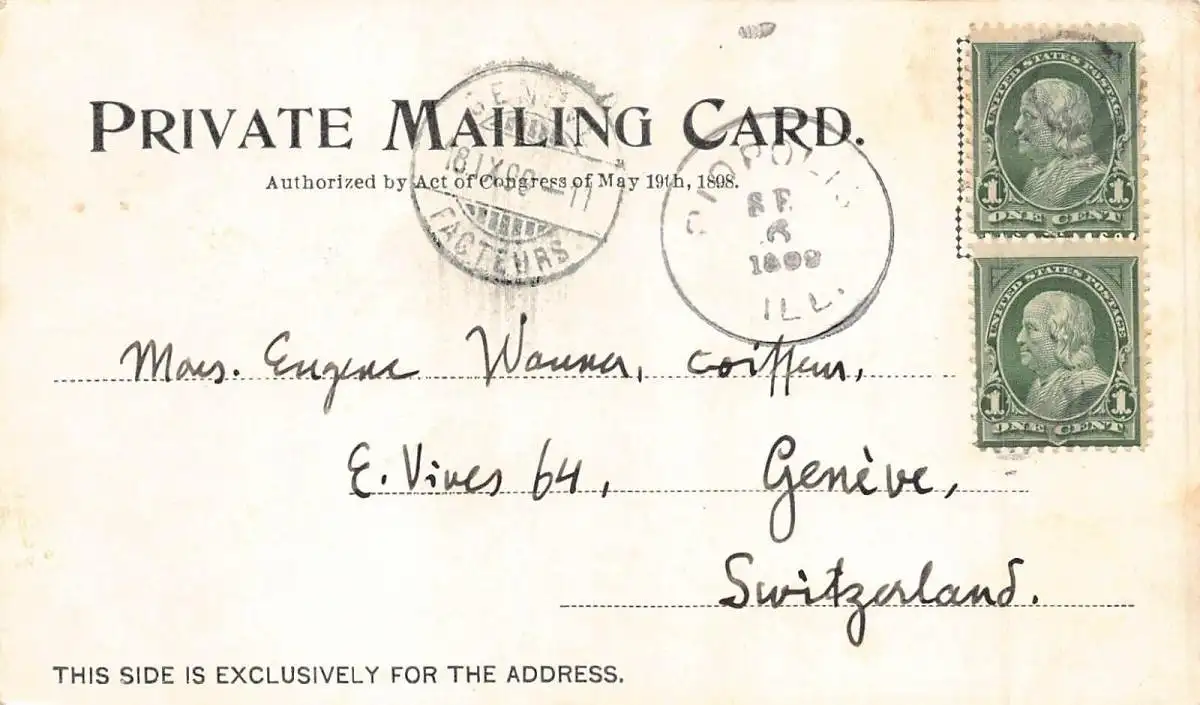 PRIVATE MAILING CARD.
Authorized by Act of Congress of May 19th, 1898.
18.IX.99 11
FACTEURS
SE
6
1899
ILL.
UNITED STATES POSTAGE
1 1
ONE CENT
UNITED STATES POSTAGE
1 1
ONE CENT
Mons. Eugene Wanner, coiffeur,
E. Vives 64, Genève,
Switzerland.
THIS SIDE IS EXCLUSIVELY FOR THE ADDRESS.